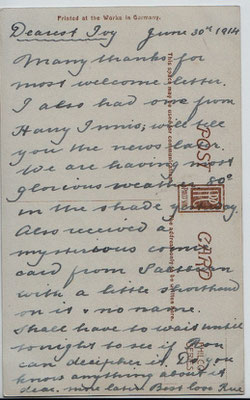 Printed at the Works in Germany.
Dearest Ivy June 30th 1914
Many thanks for
most welcome letter.
I also had one from
Harry Innis; will tell
you the news later.
We are having most
glorious weather 80°
in the shade yesterday.
Also received a
mysterious comic
card from
with a little shorthand
on it & no name.
Shall have to wait until
tonight to see if Ron
can decipher it. Do you
know anything about it
dear. more later. Best love
POST
CARD